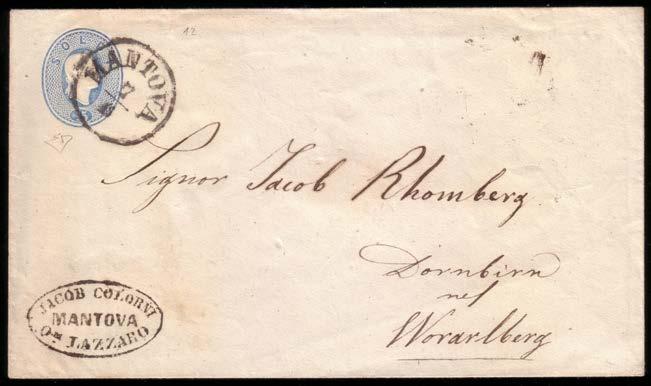 12
SOL
MANTOVA
Signor Jacob Rhomberg
Dornbirn
nel
Worarlberg
JACOB COLORNI
MANTOVA
Qm LAZZARO